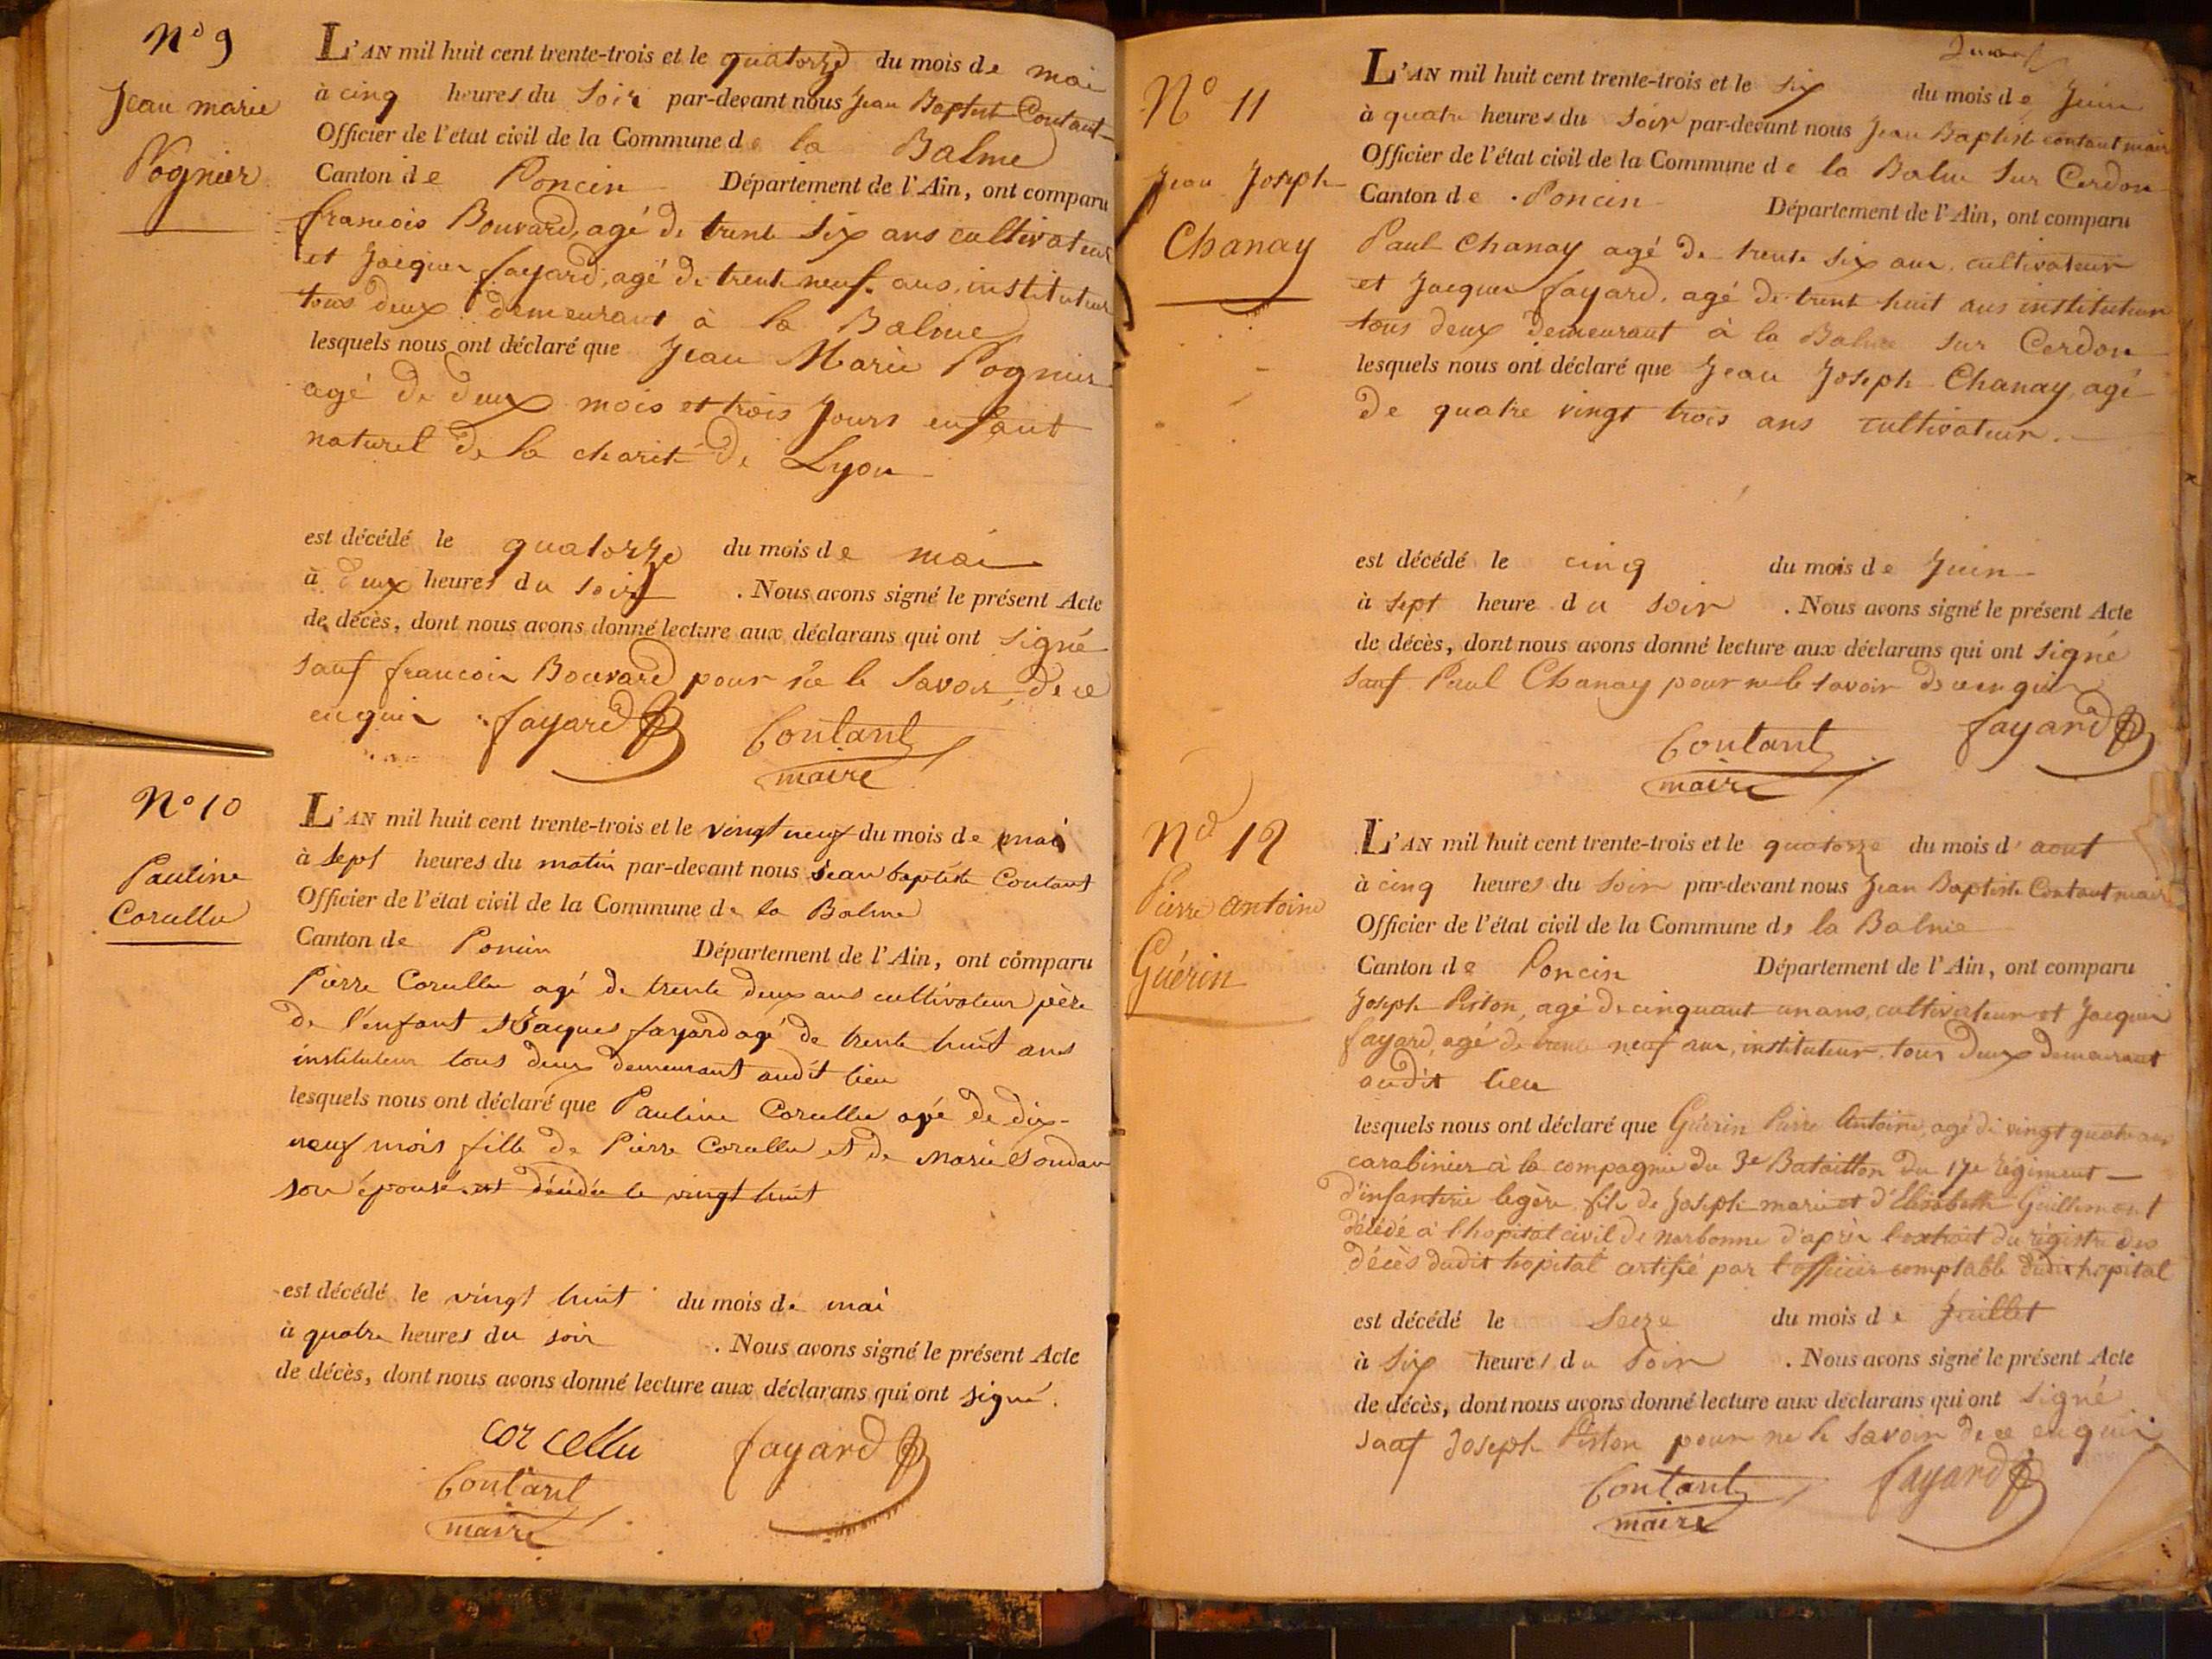 N° 9
Jean marie
Pognier
L'AN mil huit cent trente-trois et le quatorze du mois de mai
à cinq heures du soir par-devant nous Jean Baptist Contant
Officier de l'etat civil de la Commune de la Balme
Canton de Poncin Département de l'Ain, ont comparu
francois Bouvard, agé de trente six ans cultivateur
et Jacques fayard, agé de trente neuf ans, instituteur
tous deux demeurant à la Balme
lesquels nous ont déclaré que Jean Marie Pognier
agé de deux mois et trois Jours enfant
naturel de la charité de Lyon
est décédé le quatorze du mois de mai
à deux heures du soir . Nous avons signé le présent Acte
de décès, dont nous avons donné lecture aux déclarans qui ont signé
sauf francois Bouvard pour ne le savoir, de ce
enquis fayard Contant
maire
N° 10
Pauline
Corcellu
L'AN mil huit cent trente-trois et le vingt neuf du mois de mai
à sept heures du matin par-devant nous Jean baptiste Contant
Officier de l'état civil de la Commune de la Balme
Canton de Poncin Département de l'Ain, ont comparu
Pierre Corcellu agé de trente deux ans cultivateur père
de l'enfant et Jacques fayard agé de trente huit ans
instituteur tous deux demeurant audit lieu
lesquels nous ont déclaré que Pauline Corcellu agé de dix-
neuf mois fille de Pierre Corcellu et de Marie Soudan
son épouse est décédée le vingt huit
est décédé le vingt huit du mois de mai
à quatre heures du soir . Nous avons signé le présent Acte
de décès, dont nous avons donné lecture aux déclarans qui ont signé.
corcellu fayard
Contant
maire
N° 11
Jean Joseph
Chanay
L'AN mil huit cent trente-trois et le six du mois de Juin
à quatre heures du soir par-devant nous Jean Baptiste contant maire
Officier de l'état civil de la Commune de la Balme sur Cerdon
Canton de Poncin Département de l'Ain, ont comparu
Paul Chanay agé de trente six ans, cultivateur
et Jacques fayard, agé de trent huit ans instituteur
tous deux demeurant à la Balme sur Cerdon
lesquels nous ont déclaré que Jean Joseph Chanay, agé
de quatre vingt trois ans cultivateur.
est décédé le cinq du mois de Juin
à sept heure du soir . Nous avons signé le présent Acte
de décès, dont nous avons donné lecture aux déclarans qui ont signé
sauf Paul Chanay pour ne le savoir de ce enquis
Contant fayard
maire
N° 12
Pierre antoine
Guérin
L'AN mil huit cent trente-trois et le quatorze du mois d'aout
à cinq heures du soir par-devant nous Jean Baptiste Contant maire
Officier de l'état civil de la Commune de la Balme
Canton de Poncin Département de l'Ain, ont comparu
Joseph Piston, agé de cinquant un ans, cultivateur et Jacques
fayard, agé de trente neuf ans, instituteur, tous deux demeurant
audit lieu
lesquels nous ont déclaré que Guérin Pierre Antoine, agé de vingt quatre ans
carabinier à la compagnie du 3e Bataillon du 17e régiment
d'infanterie legère, fils de Joseph marie et d'Elisabeth Guillemont
décédé à l'hopital civil de Narbonne d'après l'extrait du régistre des
décès dudit hopital certifié par l'officier comptable dudit hopital
est décédé le seize du mois de Juillet
à six heures du soir . Nous avons signé le présent Acte
de décès, dont nous avons donné lecture aux déclarans qui ont signé
sauf Joseph Piston pour ne le savoir de ce enquis
Contant fayard
maire